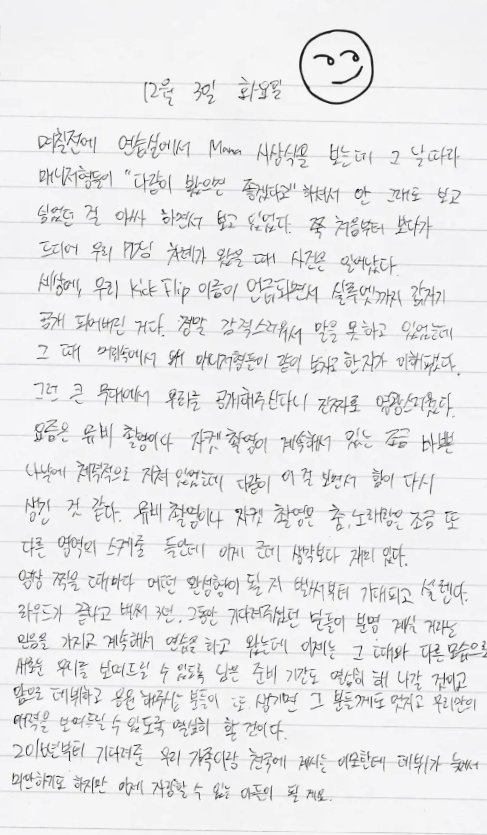 12월 3일 화요일
며칠전에 연습실에서 Mama 시상식을 보는데 그 날따라
매니저형들이 "다같이 봤으면 좋겠다고" 하셔서 안 그래도 보고
싶었던 걸 아싸 하면서 보고 있었다. 쭉 처음부터 보다가
드디어 우리 PD님 차례가 왔을 때 사건은 일어났다.
세상에, 우리 Kick Flip 이름이 언급되면서 실루엣까지 갑자기
공개 되어버린 거다. 정말 갑작스러워서 말을 못하고 있었는데
그 때 머릿속에서 왜 매니저형들이 같이 보자고 한지가 이해됐다.
그런 큰 무대에서 우리를 공개해주신다니 진짜로 영광스러웠다.
요즘은 뮤비 촬영이나 자켓 촬영이 계속해서 있는 조금 바쁜
나날에 체력적으로 지쳐 있었는데 다같이 이 걸 보면서 힘이 다시
생긴 것 같다. 뮤비 촬영이나 자켓 촬영은 춤, 노래랑은 조금 또
다른 영역의 스케줄 들인데 이게 근데 생각보다 재미 있다.
영상 찍을 때마다 어떤 완성형이 될 지 벌써부터 기대되고 설렌다.
라우드가 끝나고 벌써 3년, 그동안 기다려주셨던 분들이 분명 계실 거라는
믿음을 가지고 계속해서 연습을 하고 왔는데 이제는 그 때와 다른 모습으로
새로운 우리를 보여드릴 수 있도록 남은 준비 기간도 열심히 해 나갈 것이고
앞으로 데뷔하고 응원 해주시는 분들이 또 생기면 그 분들께도 멋지고 우리만의
매력을 보여드릴 수 있도록 열심히 할 것이다.
2016년부터 기다려준 우리 가족이랑 천국에 계시는 이모한테 데뷔가 늦어서
미안하기도 하지만 이제 자랑할 수 있는 아들이 될 게요.